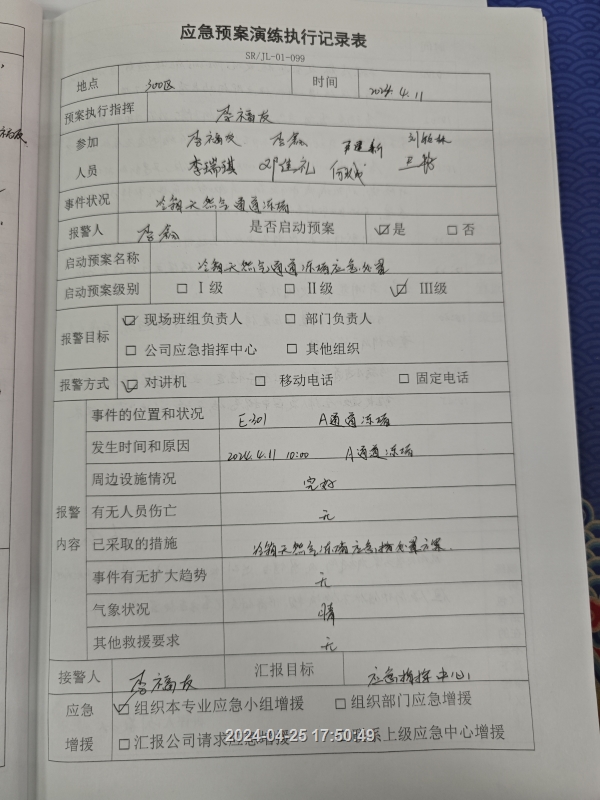 应急预案演练执行记录表
SR/JL-01-099
地点 300区 时间 2024.4.11
预案执行指挥 李福友
参加 李福友 李鑫
人员 李瑞琪 邓佳礼
事件状况 冷箱天然气通道冻堵
报警人 李鑫 是否启动预案 ☑是 □否
启动预案名称 冷箱天然气通道冻堵应急处置
启动预案级别 □ I级 □ II级 ☑ III级
报警目标 ☑ 现场班组负责人 □ 部门负责人
□ 公司应急指挥中心 □ 其他组织
报警方式 ☑ 对讲机 □ 移动电话 □ 固定电话
报警内容
事件的位置和状况 E-301 A通道冻堵
发生时间和原因 2024.4.11 10:00 A通道冻堵
周边设施情况 完好
有无人员伤亡 无
已采取的措施 冷箱天然气冻堵应急处置方案.
事件有无扩大趋势 无
气象状况 晴
其他救援要求 无
接警人 李福友 汇报目标 应急指挥中心
应急 ☑ 组织本专业应急小组增援 □ 组织部门应急增援
增援 □ 汇报公司请求应急增援 联系上级应急中心增援
2024-04-25 17:50:49